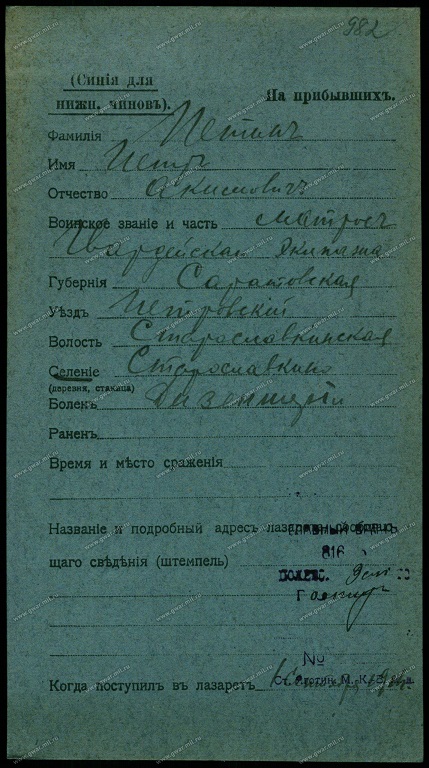 982
(Синія для
нижн. чиновъ).
На прибывшихъ.
Фамилія
Имя Петръ
Отчество Акимовичъ
Воинское званіе и часть Матросъ
Гвардейская Экипажа
Губернія Саратовская
Уѣздъ Петровскій
Волость Старославкинская
Селеніе Старославкино
(деревня, станица)
Боленъ Дизентерія
Раненъ
Время и мѣсто сраженія
Названіе и подробный адресъ лазарета
щаго свѣдѣнія (штемпель) 816
№
Когда поступилъ въ лазаретъ
www.gwar.mil.ru